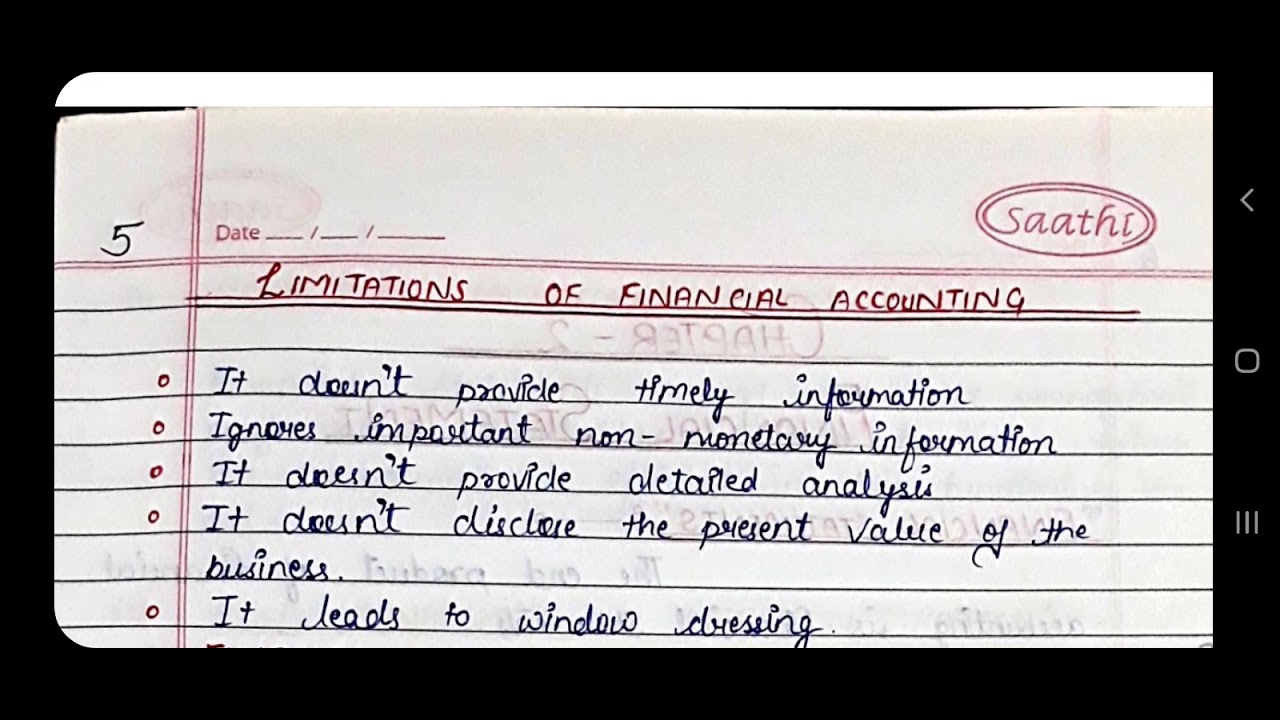 5
Date __ / __ / ____
Saathi
LIMITATIONS OF FINANCIAL ACCOUNTING
It doesn't provide timely information
Ignores important non-monetary information
It doesn't provide detailed analysis
It doesn't disclose the present value of the
business.
It leads to window dressing.